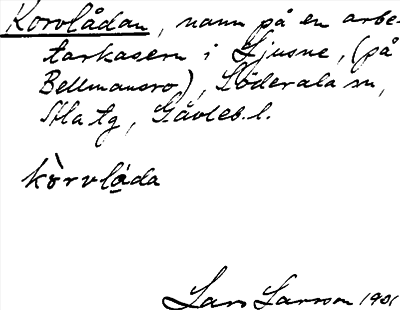 Korvlådan, namn på en arbe-
tarkasern i Ljusne, (på
Bellmansro), Söderala sn,
Ala tg, Gävleb. l.
kòrvlǻda
Lars Larsson 1901